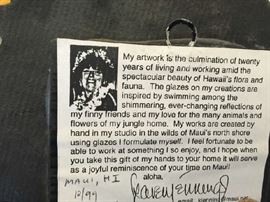 My artwork is the culmination of twenty
years of living and working amid the
spectacular beauty of Hawaii's flora and
fauna. The glazes on my creations are
inspired by swimming among the
shimmering, ever-changing reflections of
my finny friends and my love for the many animals and
flowers of my jungle home. My works are created by
hand in my studio in the wilds of Maui's north shore
using glazes I formulate myself. I feel fortunate to be
able to work at something I so enjoy, and I hope when
you take this gift of my hands to your home it will serve
as a joyful reminiscence of your time on Maui!
aloha,
MAUI, HI
10/99